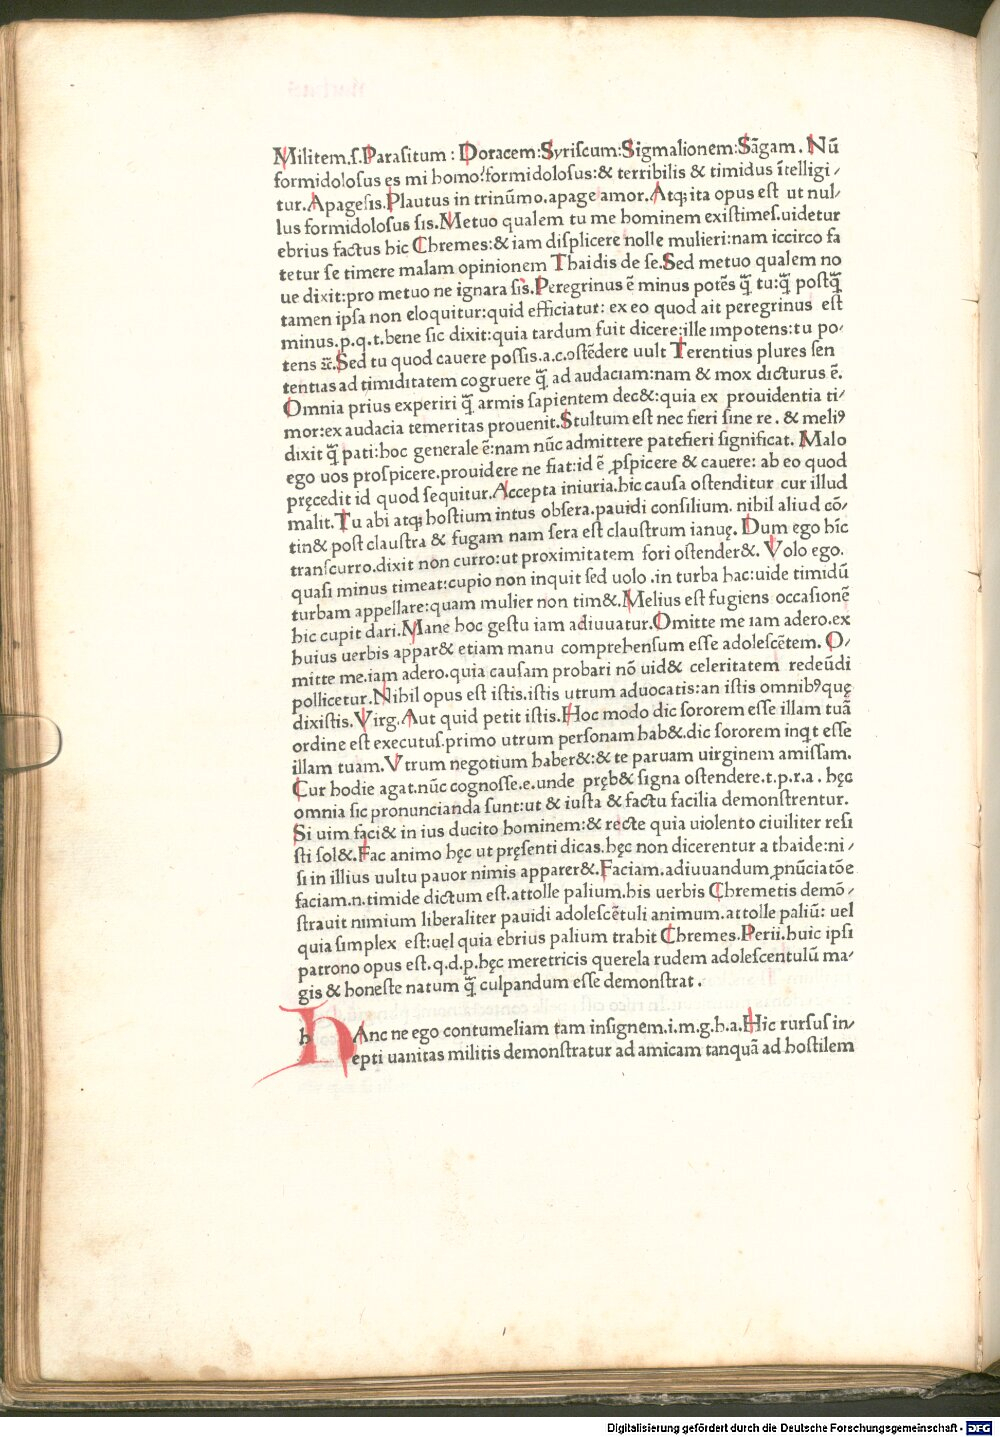 Militem.ſ.Paraſitum : Doracem:Syriſcum:Sigmalionem:Sãgam . Nũ
formidoloſus es mi homo?formidoloſus:& terribilis & timidus ĩtelligi⸗
tur.Apageſis.Plautus in trinũmo.apage amor.Atqꝫ ita opus eſt ut nul⸗
lus formidoloſus ſis.Metuo qualem tu me hominem exiſtimeſ.uidetur
ebrius factus hic Chremes:& iam diſplicere nolle mulieri:nam iccirco fa
tetur ſe timere malam opinionem Thaidis de ſe.Sed metuo qualem no
ue dixit:pro metuo ne ignara ſis.Peregrinus ẽ minus potẽs q̃ tu:q̃ poſtq̃
tamen ipſa non eloquitur:quid efficiatur: ex eo quod ait peregrinus eſt
minus.p.q.t.bene ſic dixit:quia tardum fuit dicere:ille impotens:tu po⸗
tens ẽ.Sed tu quod cauere poſſis.a.c.oſtẽdere uult Terentius plures ſen
tentias ad timiditatem cogruere q̃ ad audaciam:nam & mox dicturus ẽ.
Omnia prius experiri q̃ armis ſapientem dec&:quia ex prouidentia ti⸗
mor:ex audacia temeritas prouenit.Stultum eſt nec fieri ſine re . & meliꝰ
dixit q̃ pati:hoc generale ẽ:nam nũc admittere patefieri ſignificat. Malo
ego uos proſpicere.prouidere ne fiat:id ẽ ꝓſpicere & cauere: ab eo quod
pręcedit id quod ſequitur.Accepta iniuria.hic cauſa oſtenditur cur illud
malit.Tu abi atqꝫ hoſtium intus obſera.pauidi conſilium. nihil aliud cõ⸗
tin& poſt clauſtra & fugam nam ſera eſt clauſtrum ianuę. Dum ego hĩc
tranſcurro.dixit non curro:ut proximitatem fori oſtender&. Volo ego.
quaſi minus timeat:cupio non inquit ſed uolo .in turba hac:uide timidũ
turbam appellare:quam mulier non tim&.Melius eſt fugiens occaſionẽ
hic cupit dari.Mane hoc geſtu iam adiuuatur.Omitte me iam adero.ex
huius uerbis appar& etiam manu comprehenſum eſſe adoleſcẽtem. O⸗
mitte me.iam adero.quia cauſam probari nõ uid& celeritatem redeũdi
pollicetur.Nihil opus eſt iſtis.iſtis utrum aduocatis:an iſtis omnibꝰ quę
dixiſtis.Virg.Aut quid petit iſtis.Hoc modo dic ſororem eſſe illam tuã
ordine eſt executuſ.primo utrum perſonam hab&.dic ſororem inqt eſſe
illam tuam.Vtrum negotium haber&:& te paruam uirginem amiſſam.
Cur hodie agat.nũc cognoſſe.e.unde pręb& ſigna oſtendere.t.p.r.a . hęc
omnia ſic pronuncianda ſunt:ut & iuſta & factu facilia demonſtrentur.
Si uim faci& in ius ducito hominem:& recte quia uiolento ciuiliter reſi
ſti ſol&.Fac animo hęc ut pręſenti dicas.hęc non dicerentur a thaide:ni⸗
ſi in illius uultu pauor nimis apparer&.Faciam.adiuuandum ꝓnũciatõe
faciam.n.timide dictum eſt.attolle palium.his uerbis Chremetis demõ⸗
ſtrauit nimium liberaliter pauidi adoleſcẽtuli animum.attolle paliũ: uel
quia ſimplex eſt:uel quia ebrius palium trahit Chremes.Perii.huic ipſi
patrono opus eſt.q.d.p.hęc meretricis querela rudem adoleſcentulũ ma⸗
gis & honeſte natum q̃ culpandum eſſe demonſtrat .
HAnc ne ego contumeliam tam inſignem.i.m.g.h.a.Hic rurſus in⸗
epti uanitas militis demonſtratur ad amicam tanquã ad hoſtilem
Digitalisierung gefördert durch die Deutsche Forschungsgemeinschaft - DFG